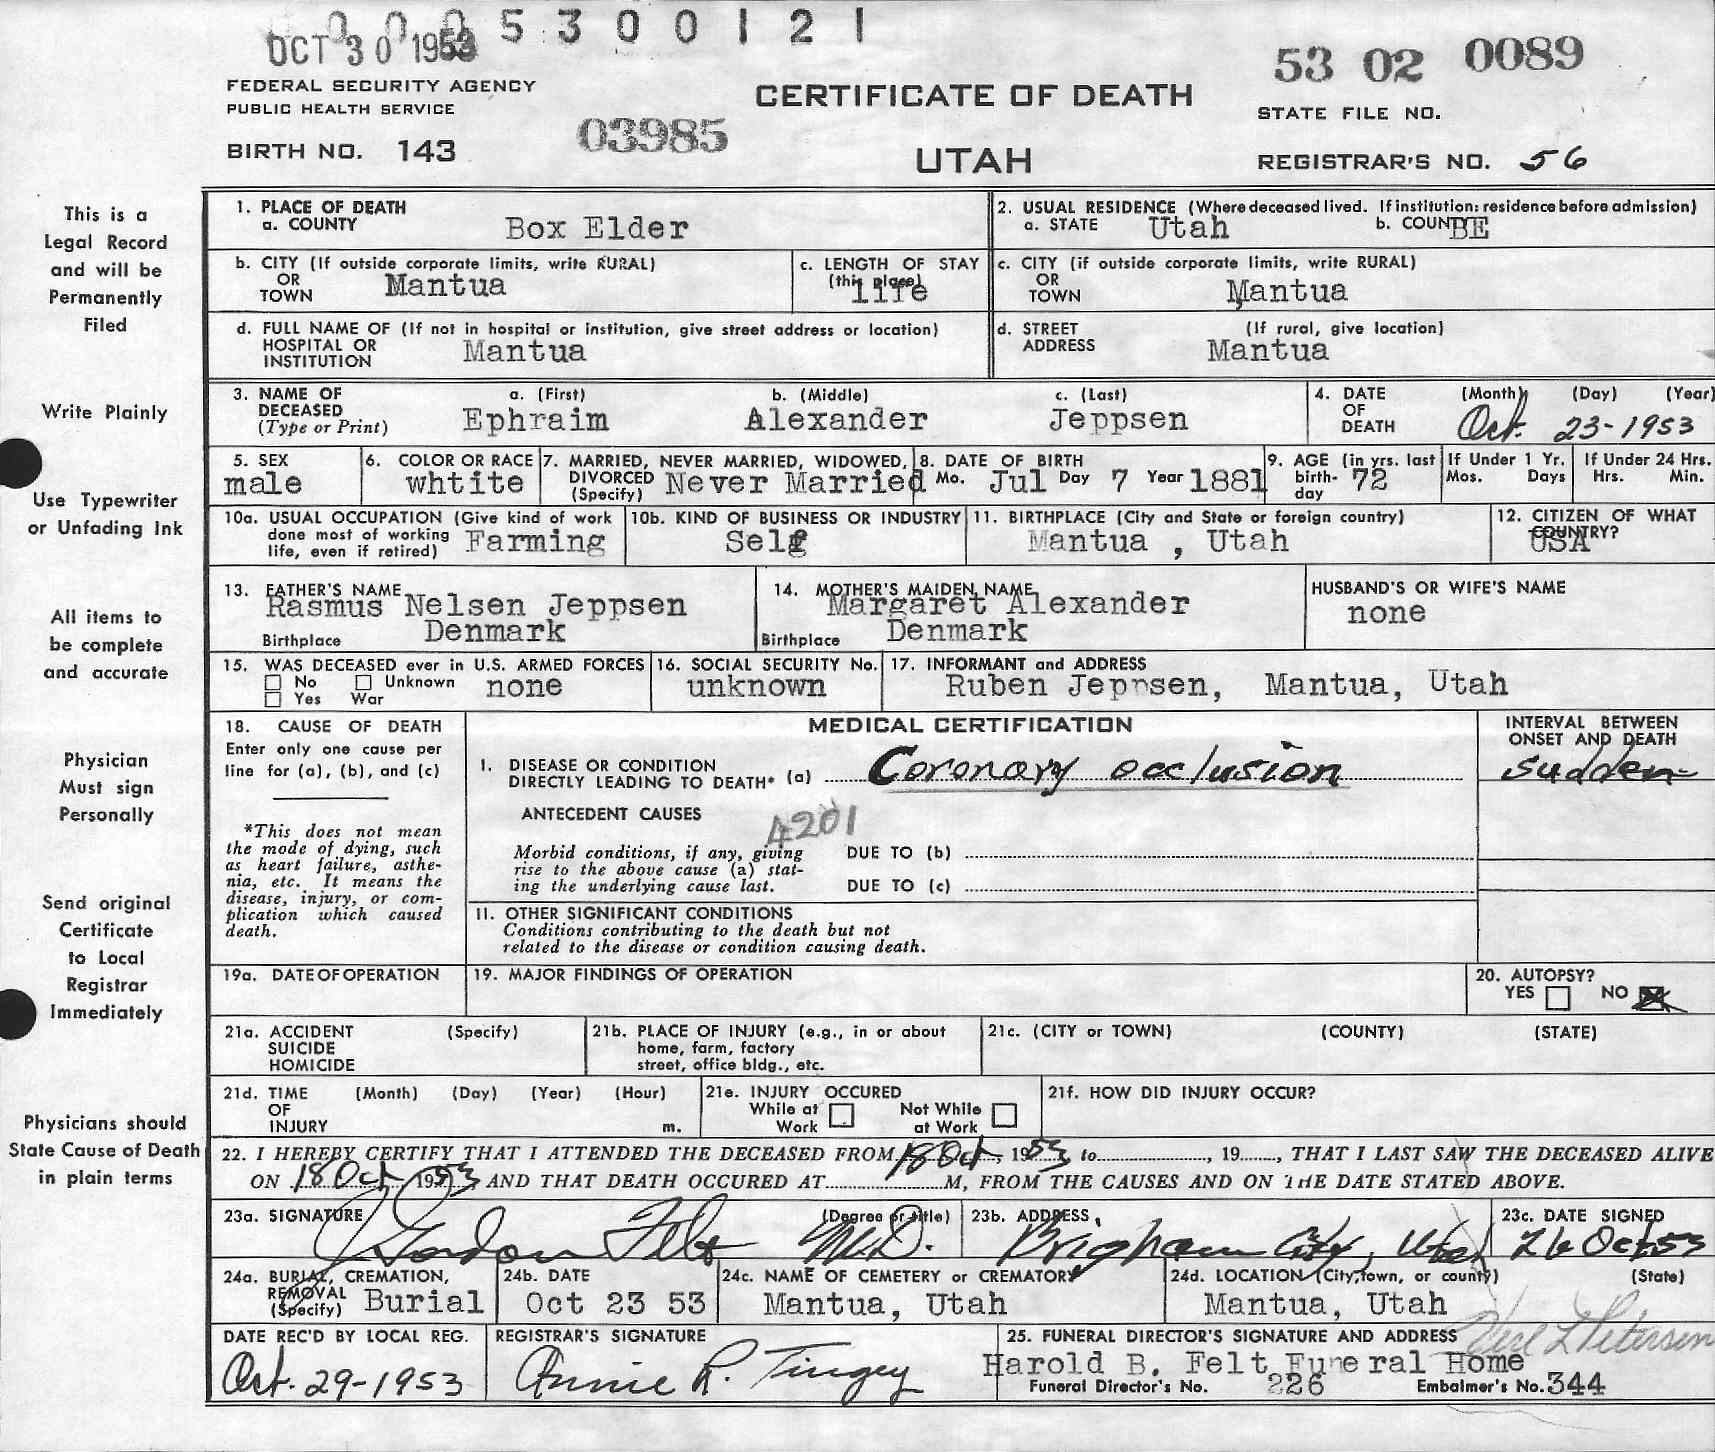 0 0 0 5 3 0 0 1 2 1
OCT 30 1953
53 02 0089
FEDERAL SECURITY AGENCY
PUBLIC HEALTH SERVICE
CERTIFICATE OF DEATH
STATE FILE NO.
BIRTH NO. 143
03985
UTAH
REGISTRAR'S NO. 56
This is a
Legal Record
and will be
Permanently
Filed
Write Plainly
Use Typewriter
or Unfading Ink
All items to
be complete
and accurate
Physician
Must sign
Personally
Send original
Certificate
to Local
Registrar
Immediately
Physicians should
State Cause of Death
in plain terms
1. PLACE OF DEATH
a. COUNTY Box Elder
2. USUAL RESIDENCE (Where deceased lived. If institution: residence before admission)
a. STATE Utah b. COUNTY BE
b. CITY (If outside corporate limits, write RURAL)
OR
TOWN Mantua
c. LENGTH OF STAY
(this place)
life
c. CITY (if outside corporate limits, write RURAL)
OR
TOWN Mantua
d. FULL NAME OF (If not in hospital or institution, give street address or location)
HOSPITAL OR
INSTITUTION Mantua
d. STREET (If rural, give location)
ADDRESS Mantua
3. NAME OF DECEASED
(Type or Print)
a. (First) b. (Middle) c. (Last)
Ephraim Alexander Jeppsen
4. DATE OF DEATH (Month) (Day) (Year)
Oct. 23-1953
5. SEX
male
6. COLOR OR RACE
whtite
7. MARRIED, NEVER MARRIED, WIDOWED,
DIVORCED (Specify) Never Married
8. DATE OF BIRTH
Mo. Jul Day 7 Year 1881
9. AGE (in yrs. last
birthday 72
If Under 1 Yr.
Mos. Days
If Under 24 Hrs.
Hrs. Min.
10a. USUAL OCCUPATION (Give kind of work
done most of working
life, even if retired) Farming
10b. KIND OF BUSINESS OR INDUSTRY
Self
11. BIRTHPLACE (City and State or foreign country)
Mantua , Utah
12. CITIZEN OF WHAT
COUNTRY?
USA
13. FATHER'S NAME
Rasmus Nelsen Jeppsen
Birthplace Denmark
14. MOTHER'S MAIDEN NAME
Margaret Alexander
Birthplace Denmark
HUSBAND'S OR WIFE'S NAME
none
15. WAS DECEASED ever in U.S. ARMED FORCES
No Unknown none
Yes War
16. SOCIAL SECURITY No.
unknown
17. INFORMANT and ADDRESS
Ruben Jeppsen, Mantua, Utah
18. CAUSE OF DEATH
Enter only one cause per
line for (a), (b), and (c)
*This does not mean
the mode of dying, such
as heart failure, asthe-
nia, etc. It means the
disease, injury, or com-
plication which caused
death.
MEDICAL CERTIFICATION
I. DISEASE OR CONDITION
DIRECTLY LEADING TO DEATH* (a) Coronary occlusion
ANTECEDENT CAUSES
4201
Morbid conditions, if any, giving
rise to the above cause (a) stat-
ing the underlying cause last.
DUE TO (b)
DUE TO (c)
INTERVAL BETWEEN
ONSET AND DEATH
sudden
II. OTHER SIGNIFICANT CONDITIONS
Conditions contributing to the death but not
related to the disease or condition causing death.
19a. DATE OF OPERATION
19. MAJOR FINDINGS OF OPERATION
20. AUTOPSY?
YES NO
21a. ACCIDENT (Specify)
SUICIDE
HOMICIDE
21b. PLACE OF INJURY (e.g., in or about
home, farm, factory
street, office bldg., etc.
21c. (CITY or TOWN) (COUNTY) (STATE)
21d. TIME (Month) (Day) (Year) (Hour)
OF
INJURY m.
21e. INJURY OCCURED
While at Work Not While at Work
21f. HOW DID INJURY OCCUR?
22. I HEREBY CERTIFY THAT I ATTENDED THE DECEASED FROM 18 Oct, 1953 to , 19 , THAT I LAST SAW THE DECEASED ALIVE
ON 18 Oct 1953 AND THAT DEATH OCCURED AT M, FROM THE CAUSES AND ON THE DATE STATED ABOVE.
23a. SIGNATURE (Degree or title)
J Gordon Felt M.D.
23b. ADDRESS
Brigham City, Utah
23c. DATE SIGNED
26 Oct 53
24a. BURIAL, CREMATION,
REMOVAL
(Specify) Burial
24b. DATE
Oct 23 53
24c. NAME OF CEMETERY or CREMATORY
Mantua, Utah
24d. LOCATION (City, town, or county) (State)
Mantua, Utah
DATE REC'D BY LOCAL REG.
Oct. 29-1953
REGISTRAR'S SIGNATURE
Annie R. Tingey
25. FUNERAL DIRECTOR'S SIGNATURE AND ADDRESS
Petersen
Harold B. Felt Funeral Home
Funeral Director's No. 226 Embalmer's No. 344